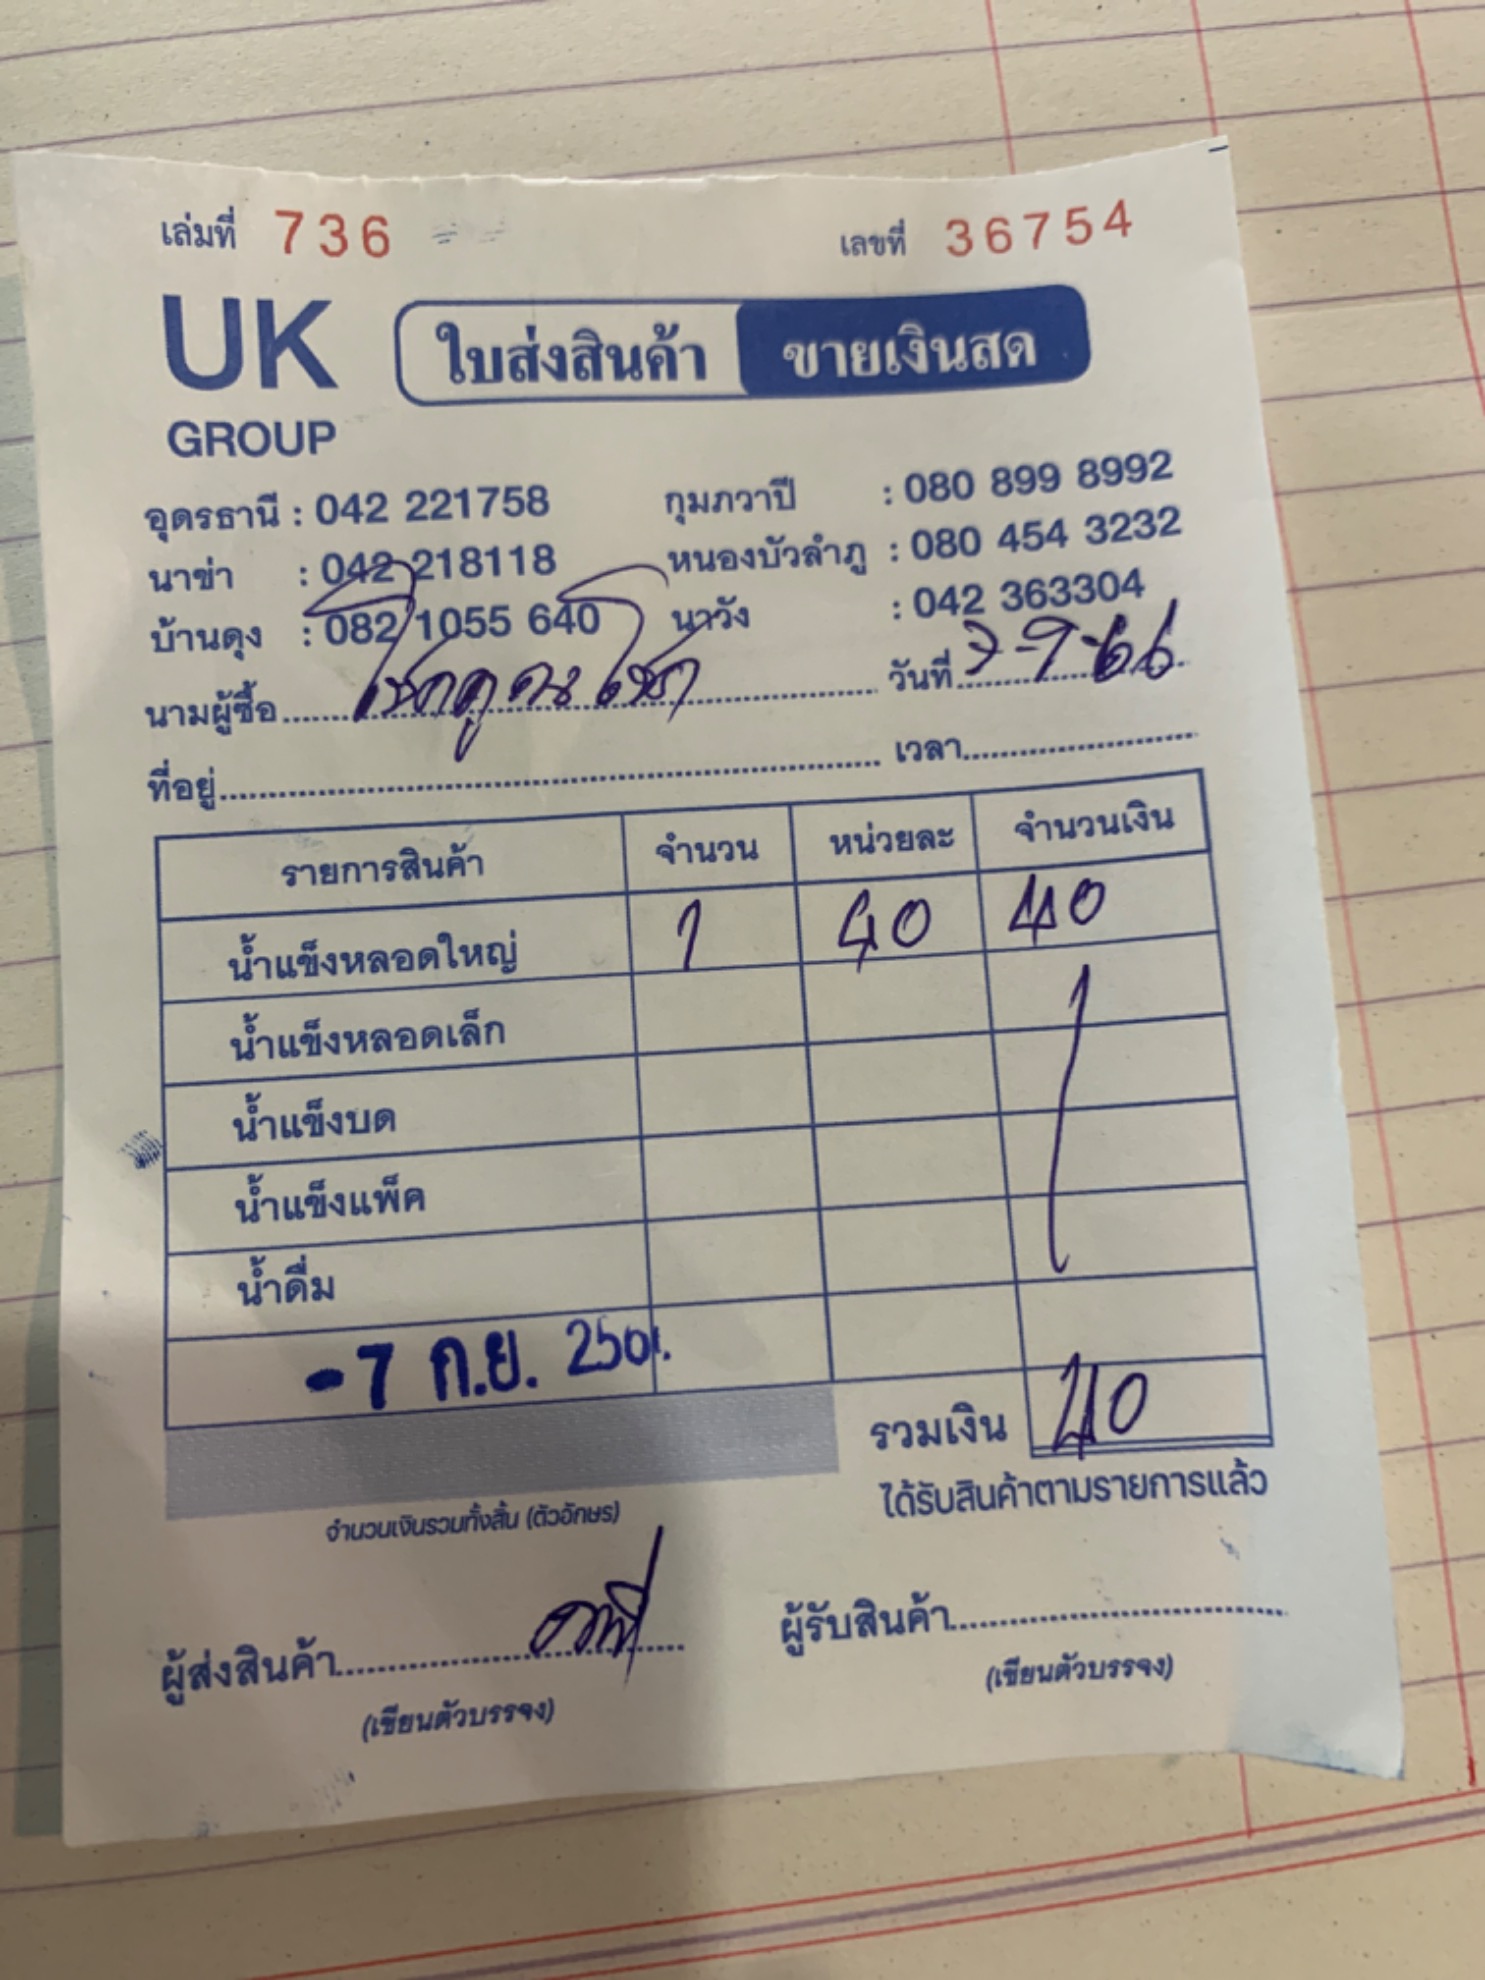 เล่มที่ 736 เลขที่ 36754
UK ใบส่งสินค้า ขายเงินสด
GROUP
อุดรธานี : 042 221758 กุมภวาปี : 080 899 8992
นาข่า : 042 218118 หนองบัวลำภู : 080 454 3232
บ้านดุง : 082 1055 640 นาวัง : 042 363304
นามผู้ซื้อ โชคคูณโชค วันที่ 7-9-66
ที่อยู่ เวลา
รายการสินค้า จำนวน หน่วยละ จำนวนเงิน
น้ำแข็งหลอดใหญ่ 1 40 40
น้ำแข็งหลอดเล็ก
น้ำแข็งบด
น้ำแข็งแพ็ค
น้ำดื่ม
-7 ก.ย.
รวมเงิน 40
จำนวนเงินรวมทั้งสิ้น (ตัวอักษร) ได้รับสินค้าตามรายการแล้ว
ผู้ส่งสินค้า ผู้รับสินค้า
(เขียนตัวบรรจง) (เขียนตัวบรรจง)